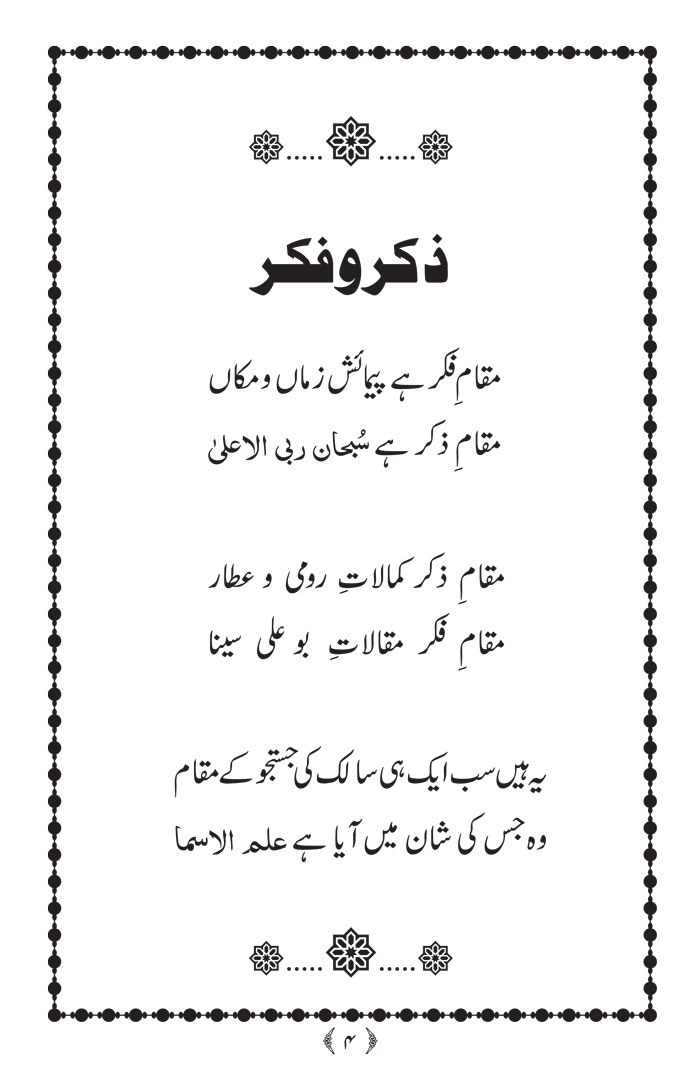 ذکر و فکر
مقامِ فکر ہے پیمائش زماں و مکاں
مقامِ ذکر ہے سُبحان ربی الاعلیٰ
مقامِ ذکر کمالاتِ رومی و عطار
مقامِ فکر مقالاتِ بو علی سینا
یہ ہیں سب ایک ہی سالک کی جستجو کے مقام
وہ جس کی شان میں آیا ہے علم الاسما
﴿ ۴ ﴾